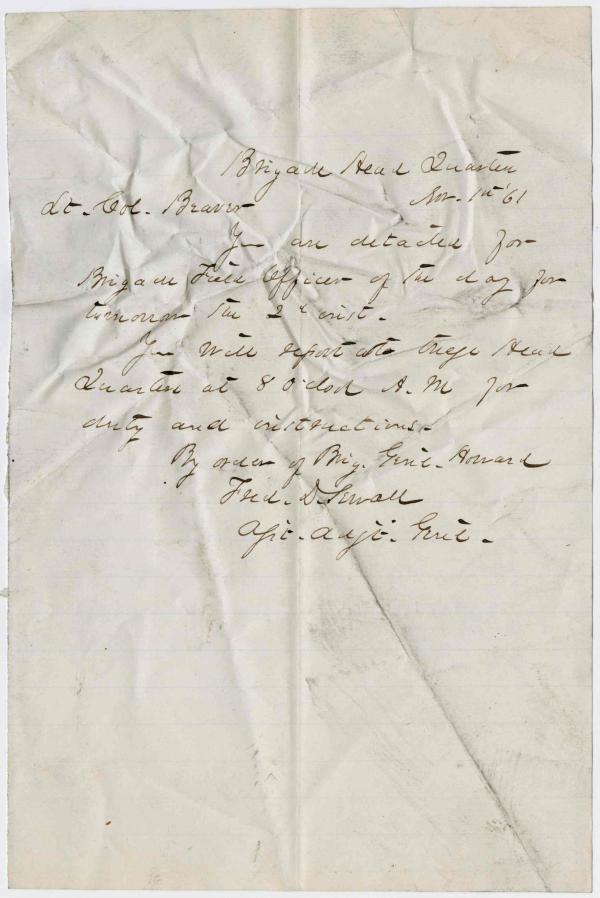 Brigade Head Quarters
Nov. 1st '61
Lt. Col. Beaver
You are detailed for
Brigade Field Officer of the day for
tomorrow the 2d inst.
You will report at these Head
Quarters at 8 O'clock A. M for
duty and instructions.
By order of Brig. Genl. Howard
Fred. D. Sewall
Asst. Adjt. Genl.